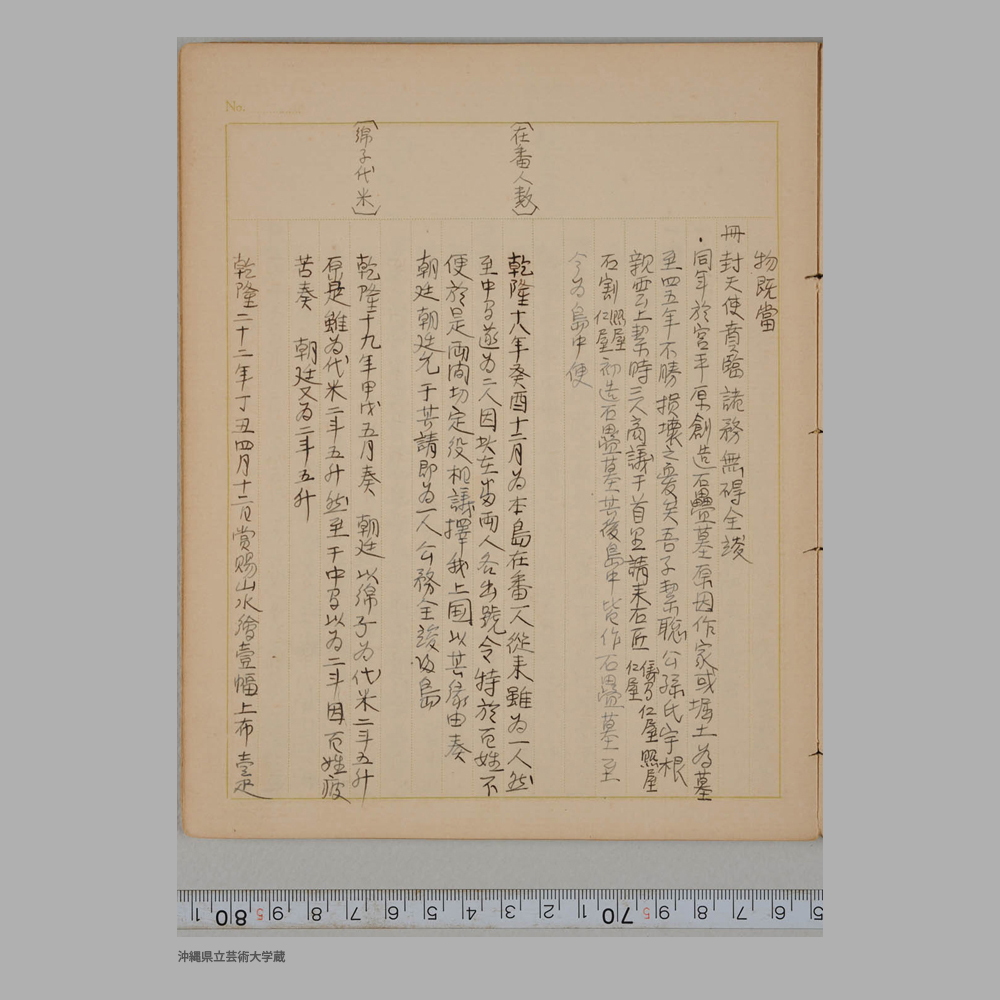 No.
物既當
冊封天使賁臨諸務無碍全竣
・同年於宮平原創造石疊墓原因作家或堀土為墓
至四五年不勝損壊之憂矣吾子 聰公孫氏宇根
親雲上 時三人商議于首里請来石匠 儀間仁屋 仁屋 照屋
石割 照屋仁屋 初造石疊墓其後島中皆作石疊墓至
今為島中便
〔在番人数〕
乾隆十八年癸酉十二月為本島在番一人從来雖為一人然
至中間遂為二人因此在番両人各出 令特於百姓不
便於是両間切定役相議擇我上国以其縁由奏
朝廷朝廷允于其請即為一人公務全竣返島
〔綿子代米〕
乾隆十九年甲戌五月奏 朝廷以綿子為代米二斗五升
原是雖為代米二斗五升然至于中間以為二斗因百姓疲
苦奏 朝廷又為二斗五升
乾隆二十二年丁丑四月十二日賞賜山水繪壹幅上布壹疋
1 80 5 9 8 7 6 5 4 3 2 1 70 5 9 8 7 6 5
沖縄県立芸術大学蔵